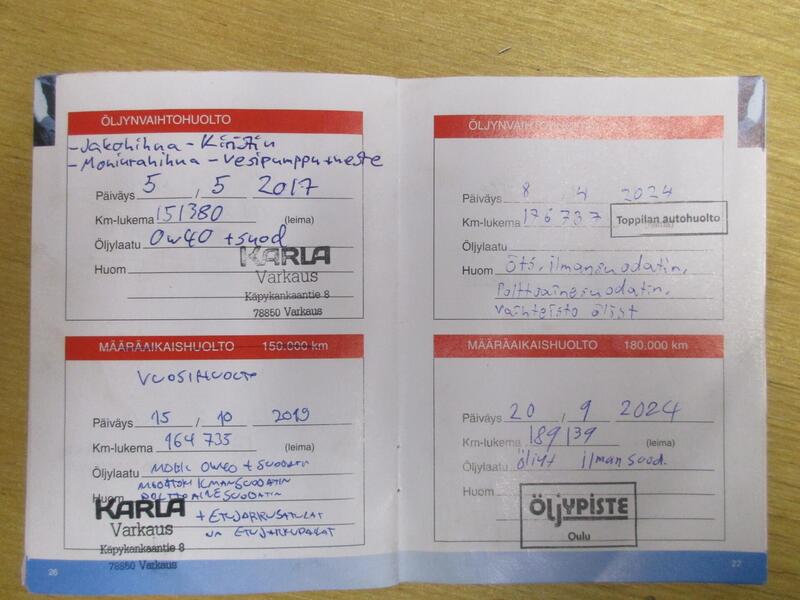 ÖLJYNVAIHTOHUOLTO
-Jakohihna - Kiristin
-Moniurahihna - Vesipumppu+neste
Päiväys 5 , 5 2017
Km-lukema 151380 (leima)
Öljylaatu 0w40 +suod
Huom
KARLA
Varkaus
Käpykankaantie 8
78850 Varkaus
MÄÄRÄAIKAISHUOLTO 150.000 km
VUOSIHUOLTO
Päiväys 15 / 10 2019
Km-lukema 164 735 (leima)
Öljylaatu 0W40 + SUODATIN
ILMANSUODATIN
Huom POLTTOAINESUODATIN
+ ETUJARRUSATULAT
JA ETUJARRUPALAT
KARLA
Varkaus
Käpykankaantie 8
78850 Varkaus
26
ÖLJYNVAIHTOHUOLTO
Päiväys 8 , 4 2024
Km-lukema 176 737
Toppilan autohuolto
Öljylaatu
Huom öts, ilmansuodatin,
polttoainesuodatin,
vaihteisto öljyt
MÄÄRÄAIKAISHUOLTO 180.000 km
Päiväys 20 / 9 2024
Km-lukema 189139 (leima)
Öljylaatu öljyt ilmansuod.
Huom
ÖLJYPISTE
Oulu
27